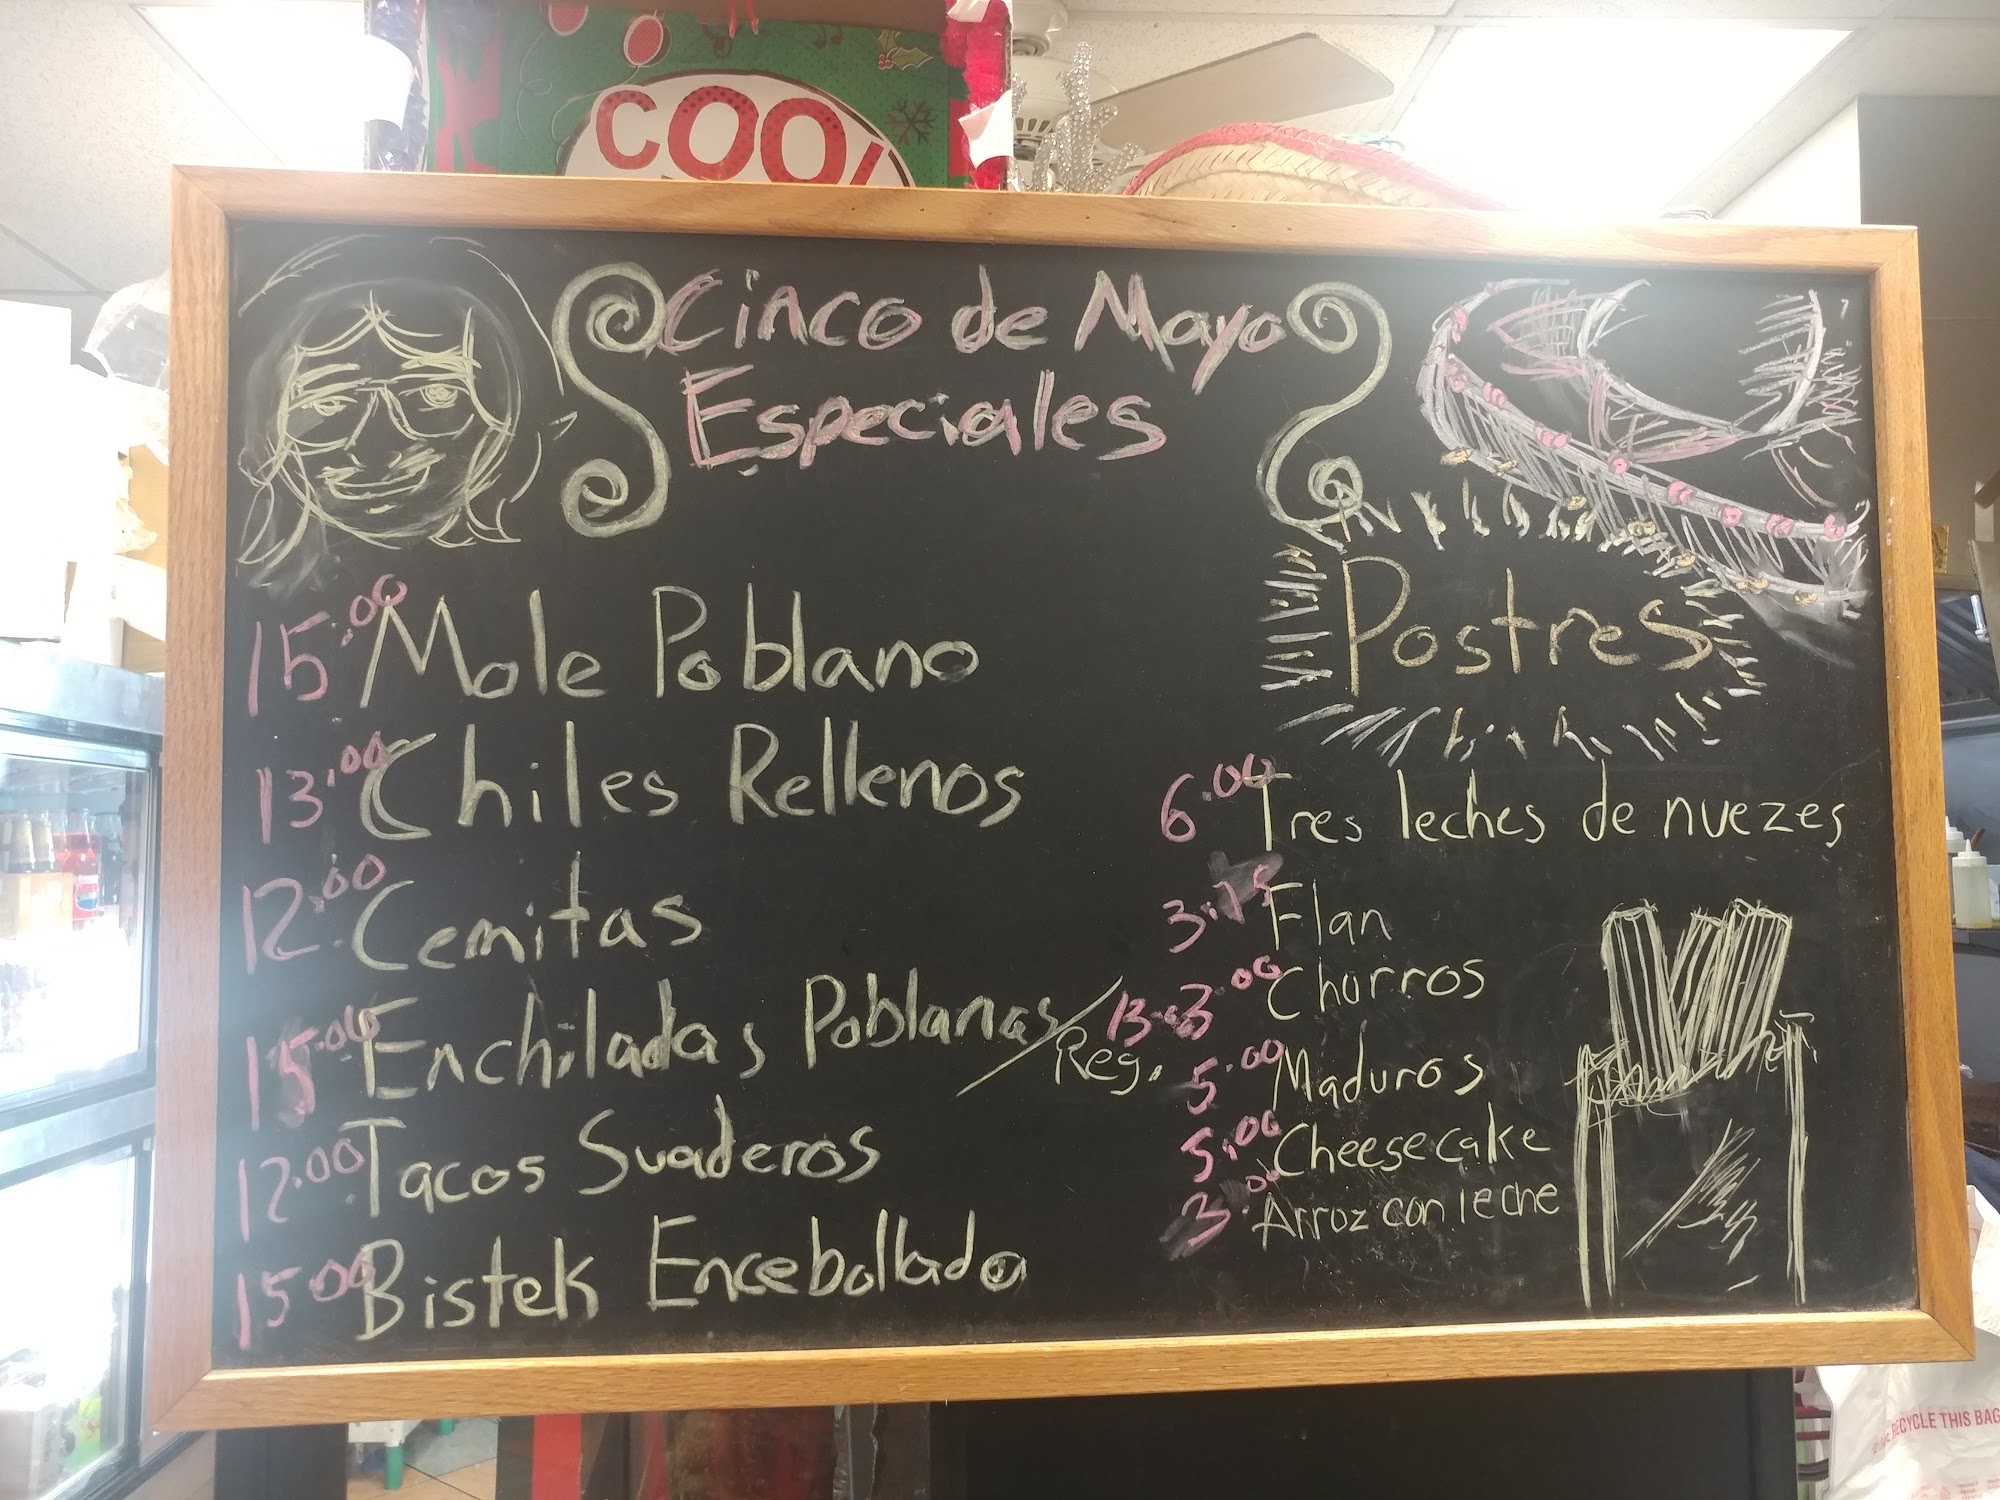 COOL
Cinco de Mayo
Especiales
15.00 Mole Poblano
13.00 Chiles Rellenos
12.00 Cemitas
15.00 Enchiladas Poblanas/Reg. 13.
12.00 Tacos Suaderos
15.00 Bistek Encebollado
Postres
6.00 Tres leches de nuezes
3.75 Flan
3.00 Churros
5.00 Maduros
5.00 Cheesecake
3.00 Arroz con leche
RECYCLE THIS BAG